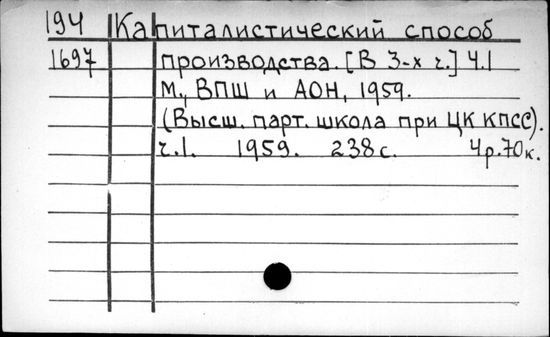 194 Капиталистический способ
1697 производства. [В 3-х ч.] Ч.1
М., ВПШ и АОН, 1959.
(Высш. парт. школа при ЦК КПСС).
ч.1. 1959. 238 с. 4р.70к.